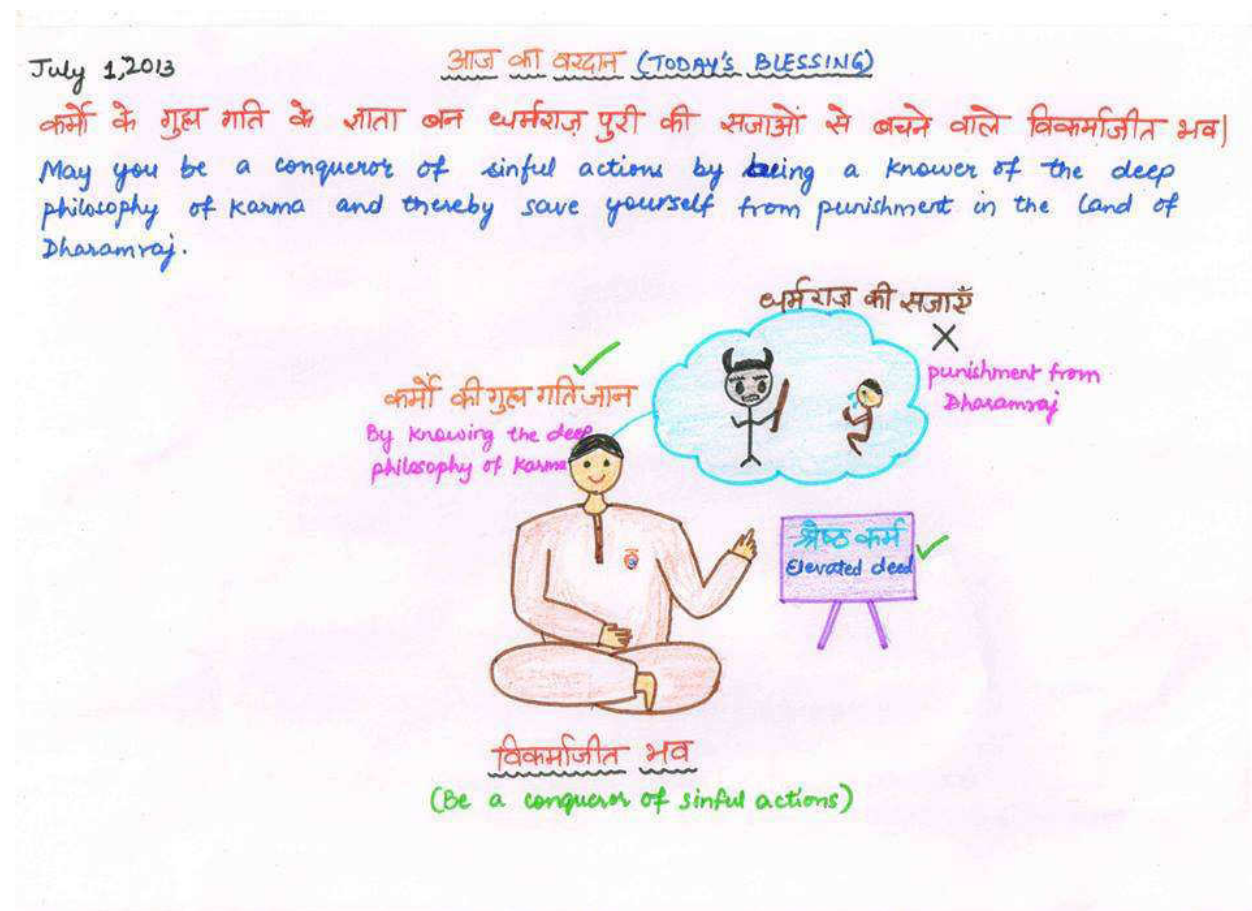 July 1,2013
आज का वरदान (TODAY'S BLESSING)
कर्मो के गुह्य गति के ज्ञाता बन धर्मराज़ पुरी की सजाओं से बचने वाले विकर्माजीत भव|
May you be a conqueror of sinful actions by being a knower of the deep
philosophy of karma and thereby save yourself from punishment in the land of
Dharamraj.
धर्मराज़ की सजाएँ
punishment from
Dharamraj
कर्मो की गुह्य गति जान
By knowing the deep
philosophy of Karma
श्रेष्ठ कर्म
Elevated deed
विकर्माजीत भव
(Be a conqueror of sinful actions)